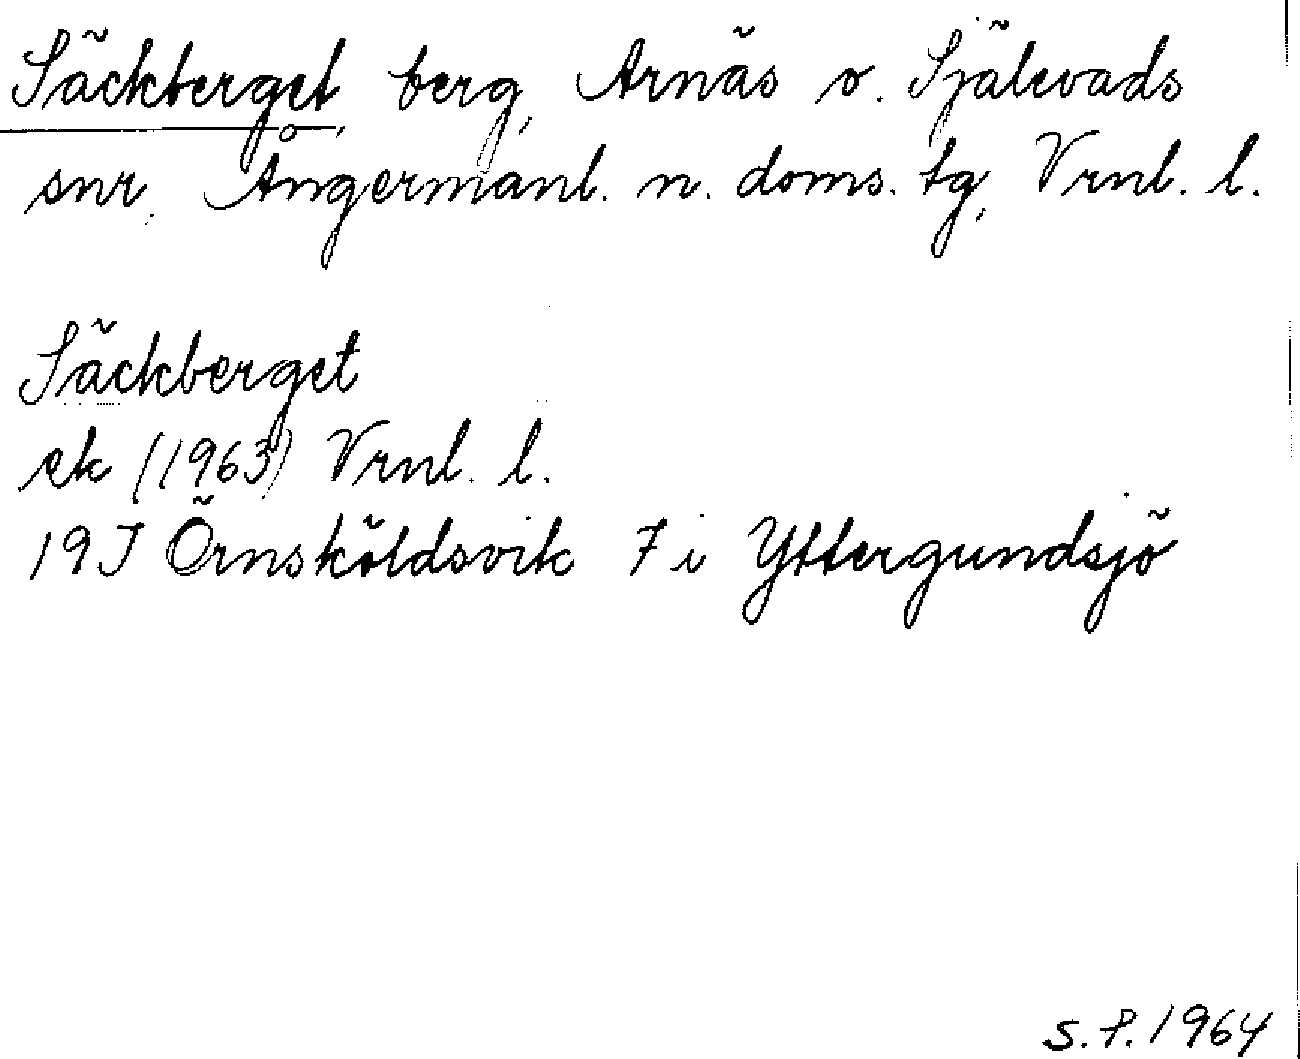 Säckberget, berg, Arnäs o. Själevads
snr, Ångermanl. n. doms. tg, Vrnl. l.
Säckberget
ek (1963) Vrnl. l.
19J Örnsköldsvik 7i Yttergundsjö
S.P. 1964